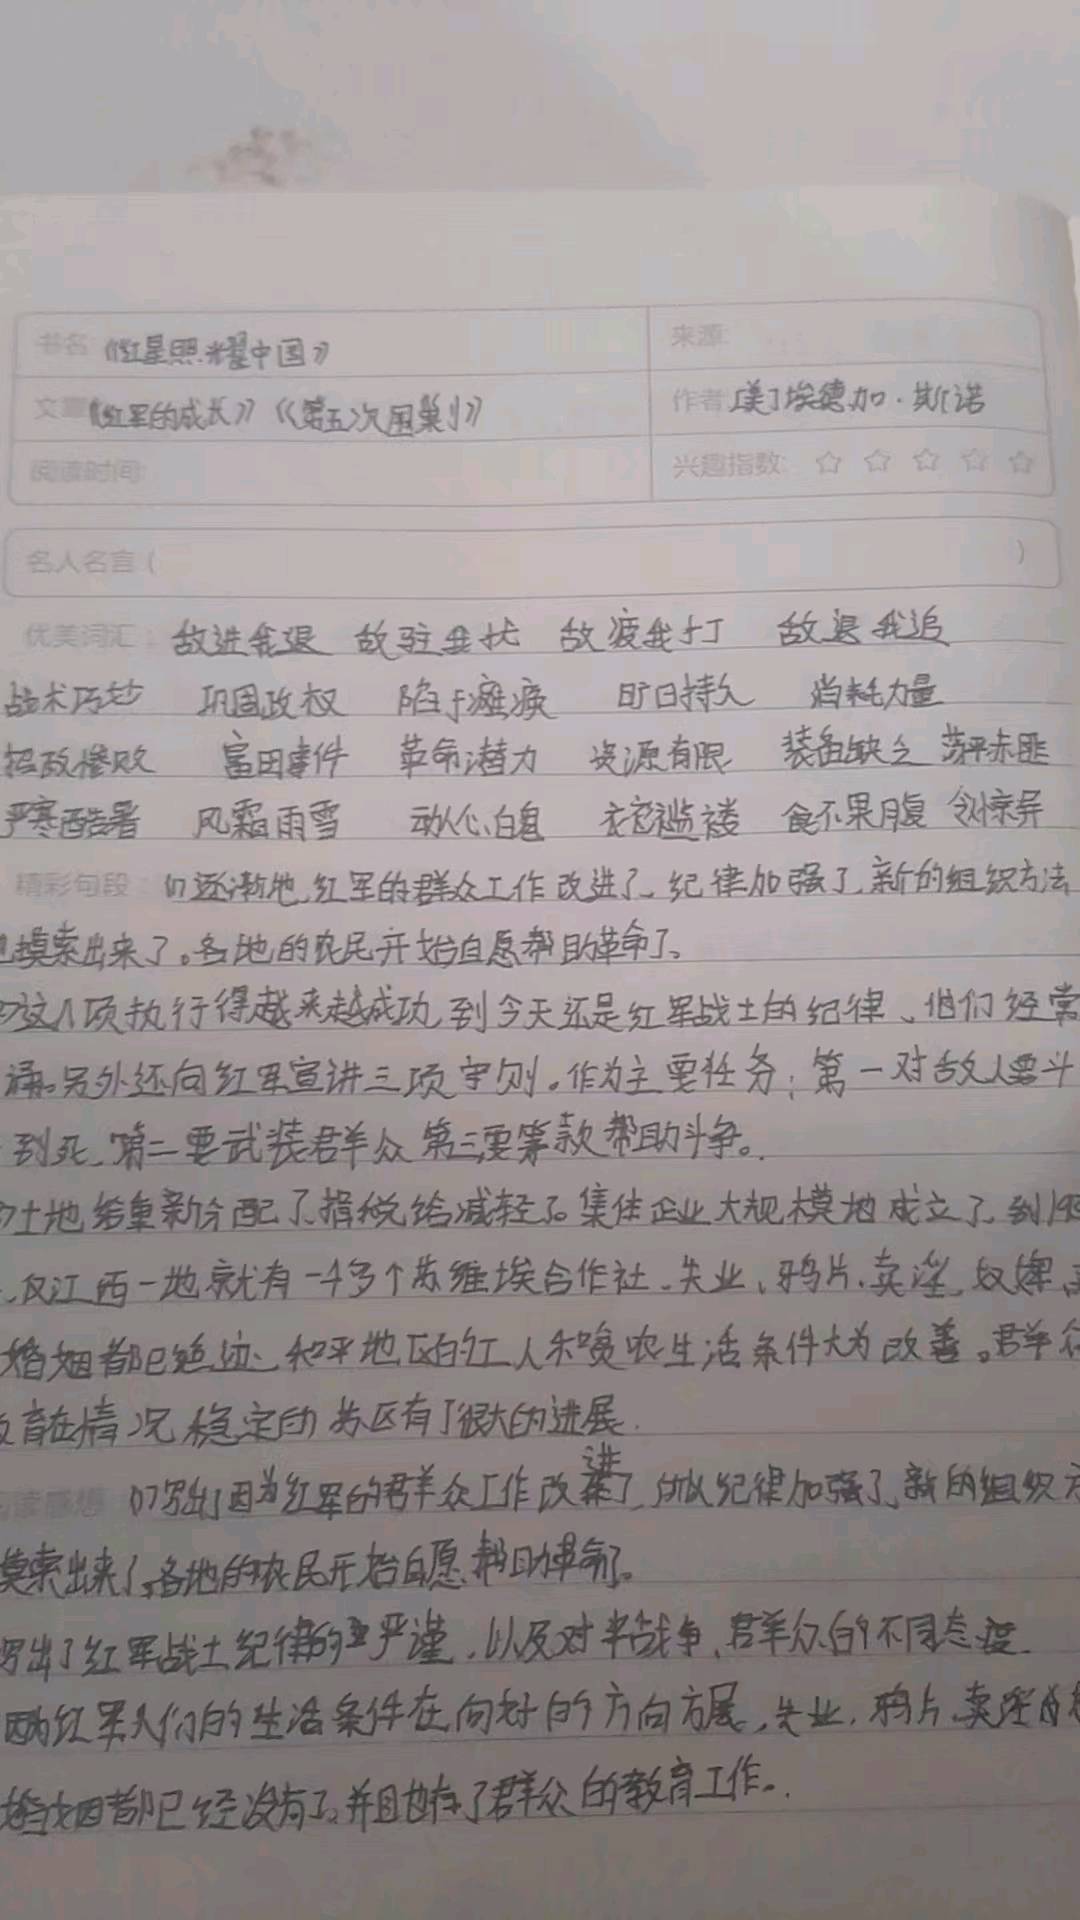 书名 《红星照耀中国》 来源:
文章《红军的成长》《第五次围剿》 作者 [美]埃德加·斯诺
阅读时间: 兴趣指数: ☆ ☆ ☆ ☆ ☆
名人名言 ( )
优美词汇: 敌进我退 敌驻我扰 敌疲我打 敌退我追
战术巧妙 巩固政权 陷于瘫痪 旷日持久 消耗力量
招致惨败 富田事件 革命潜力 资源有限 装备缺乏 荡平赤匪
严寒酷暑 风霜雨雪 动人心魄 衣衫褴褛 食不果腹 令人惊异
精彩句段: (1)逐渐地,红军的群众工作改进了,纪律加强了,新的组织方法
也摸索出来了。各地的农民开始自愿帮助革命了。
这八项执行得越来越成功,到今天还是红军战士的纪律、他们经常
诵。另外还向红军宣讲三项守则。作为主要任务:第一对敌人要斗
到死、第二要武装群众 第三要筹款帮助斗争。
土地给重新分配了,捐税给减轻了。集体企业大规模地成立了、到193
、仅江西一地就有一千多个苏维埃合作社、失业、鸦片、卖淫、奴婢、
婚姻都已绝迹、和平地区的红人和贫农生活条件大为改善。群众
教育在情况稳定的苏区有了很大的进展.
阅读感想 (1)写出了因为红军的群众工作改进了,所以纪律加强了、新的组织方
摸索出来了,各地的农民开始自愿帮助革命了。
写出了红军战士纪律的严谨、以及对战争、群众的不同态度.
红军人们的生活条件在向好的方向方展、失业、鸦片、卖淫
婚姻都已经没有了,并且也有了群众的教育工作。